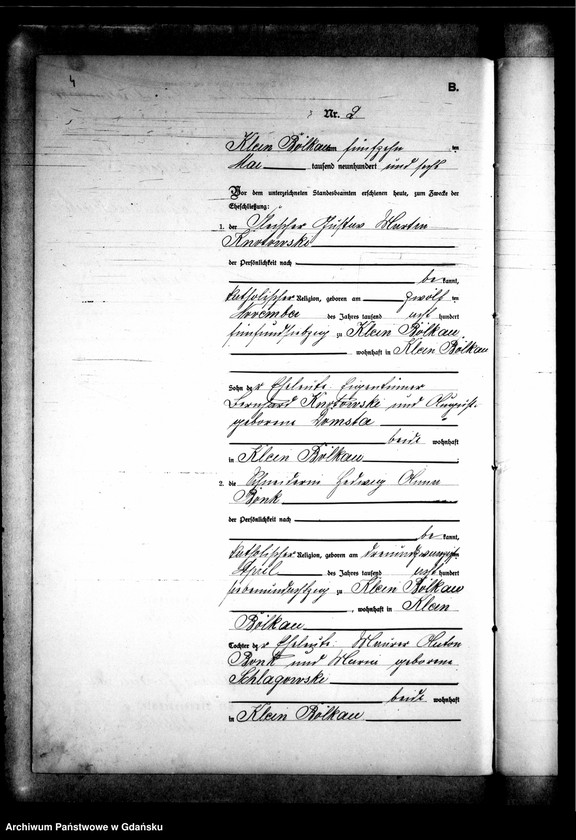 B.
Nr. 2
Klein Bölkau am fünfzehn ten
Mai tausend neunhundert und sechs
Vor dem unterzeichneten Standesbeamten erschienen heute, zum Zwecke der
Eheschließung:
1. der Fleischer Gustav Martin
Knotowski
der Persönlichkeit nach
be kannt,
katholischer Religion, geboren am zwölf ten
November des Jahres tausend acht hundert
fünfundsiebzig zu Klein Bölkau
, wohnhaft in Klein Bölkau
Sohn der Eheleute Eigentümer
Bernhard Knotowski und
geborene Domsta
beide wohnhaft
in Klein Bölkau
2. die Schneiderin Hedwig Anna
Bonk
der Persönlichkeit nach
be kannt,
katholischer Religion, geboren am dreiundzwanzigsten
April des Jahres tausend acht hundert
siebenundachtzig zu Klein Bölkau
, wohnhaft in Klein
Bölkau
Tochter der Eheleute Maurer Anton
Bonk und Maria geborene
Schlagowski
beide wohnhaft
in Klein Bölkau
Archiwum Państwowe w Gdańsku